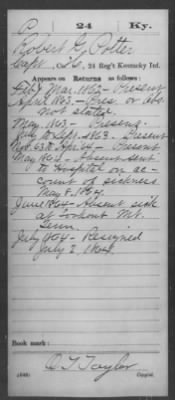 P | 24 | Ky.
Robert G. Potter
Capt., Co. C, 24 Reg't Kentucky Inf.
Appears on Returns as follows:
Feby Mar. 1863 - Present
April 1863 - Pres. or abs.
not stated.
May 1863 - Present
July to Sept. 1863. Present
Nov. 63 to Apr. 64 - Present
May 1864 - Absent sent
to Hospital on ac-
count of sickness
May 8, 1864.
June 1864 - Absent sick
at Lookout Mt.
Tenn.
July 1864 - Resigned
July 2, 1864.
Book mark:
O T Taylor
(546) Copyist.